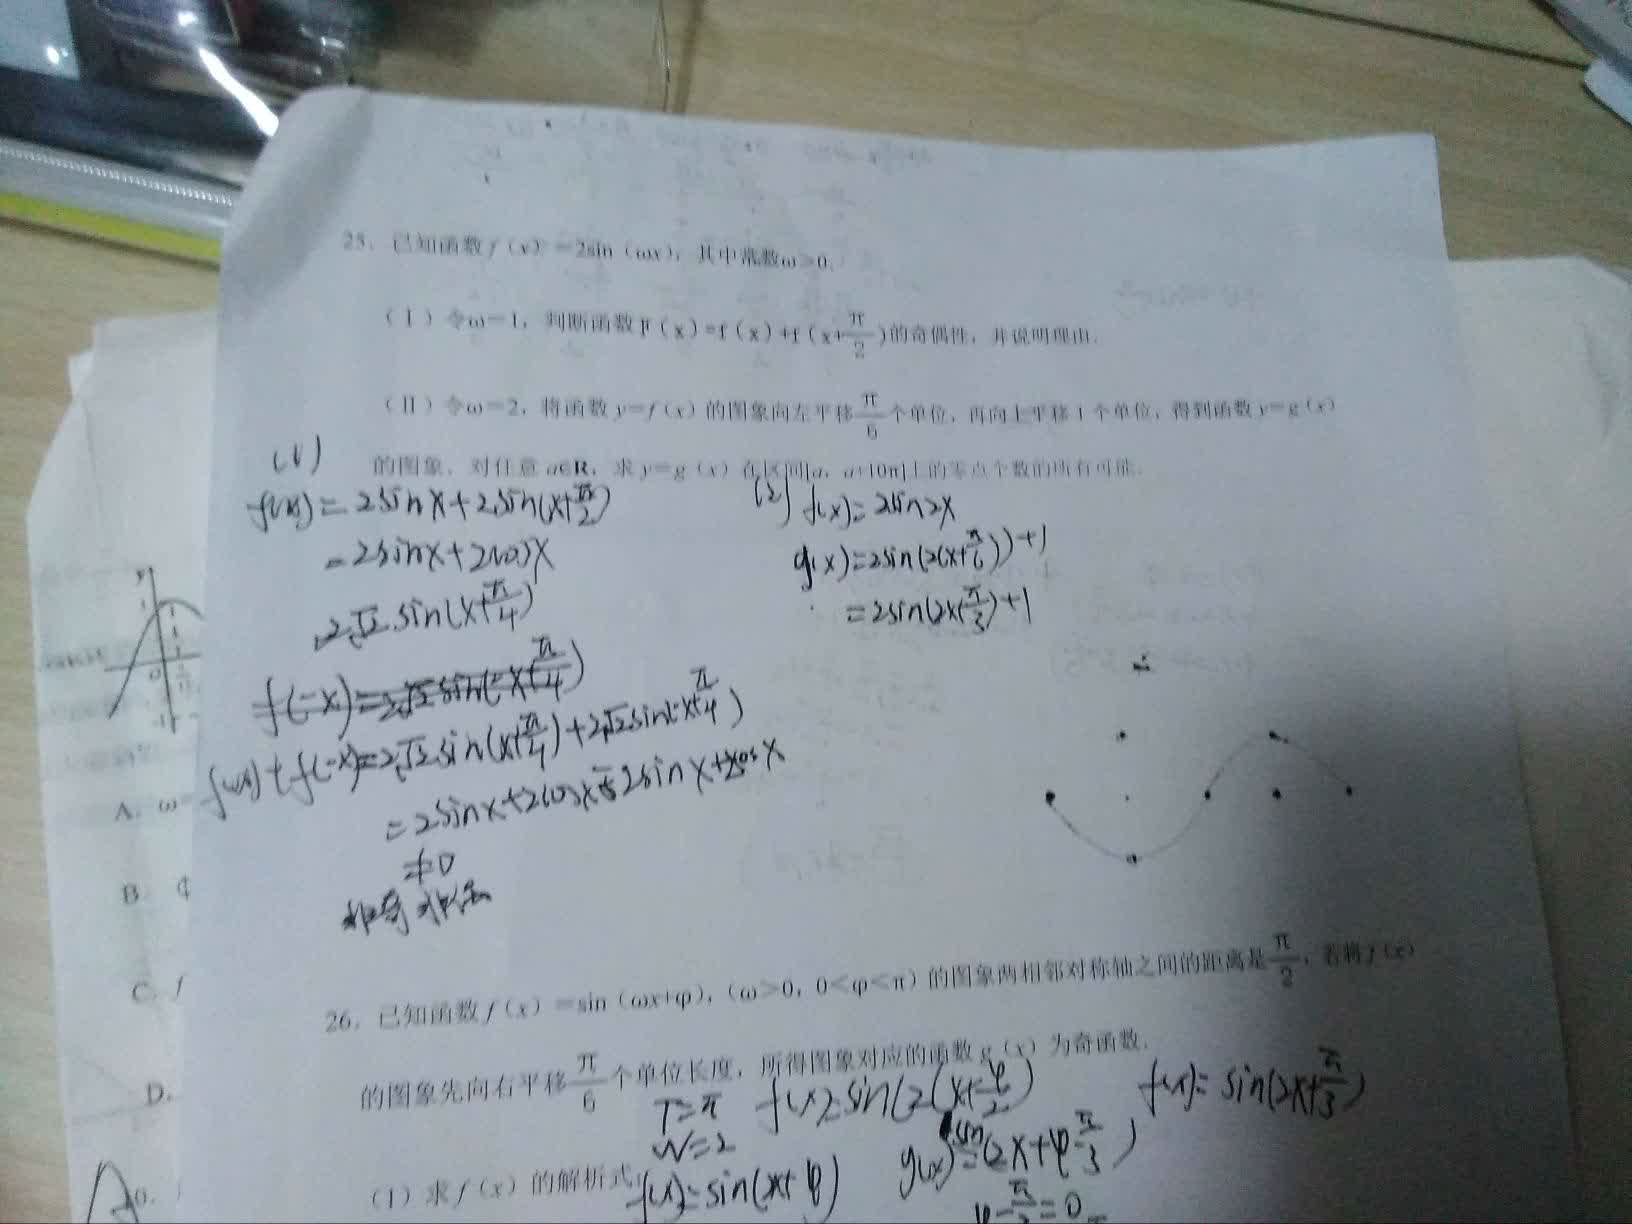 25. 已知函数 f(x)=2sin(ωx), 其中常数ω>0.
(Ⅰ)令ω=1, 判断函数F(x)=f(x)+f(x+π/2)的奇偶性, 并说明理由.
(Ⅱ)令ω=2, 将函数 y=f(x)的图象向左平移π/6个单位, 再向上平移1个单位, 得到函数 y=g(x)
的图象, 对任意 a∈R, 求 y=g(x)在区间[a, a+10π]上的零点个数的所有可能.
(1)
f(x)=2sinx+2sin(x+π/2)
=2sinx+2cosx
2√2 sin(x+π/4)
f(-x)=2√2 sin(-x+π/4)
f(x)+f(-x)=2√2 sin(x+π/4)+2√2 sin(-x+π/4)
=2sinx+2cosx-2sinx+2cosx
≠0
非奇非偶
(2) f(x)=2sin2x
g(x)=2sin(2(x+π/6))+1
=2sin(2x+π/3)+1
y
1
0
-1
A. ω=
B.
C. f
D.
26. 已知函数 f(x)=sin(ωx+φ), (ω>0, 0<φ<π)的图象两相邻对称轴之间的距离是π/2, 若将 f(x)
的图象先向右平移π/6个单位长度, 所得图象对应的函数 g(x)为奇函数.
T=π
W=2
f(x)=sin(2(x+φ/2)
f(x)=sin(2x+π/3)
g(x)=sin(2x+φ-π/3)
(1)求 f(x)的解析式;
f(x)=sin(2x+φ)
φ-π/3=0